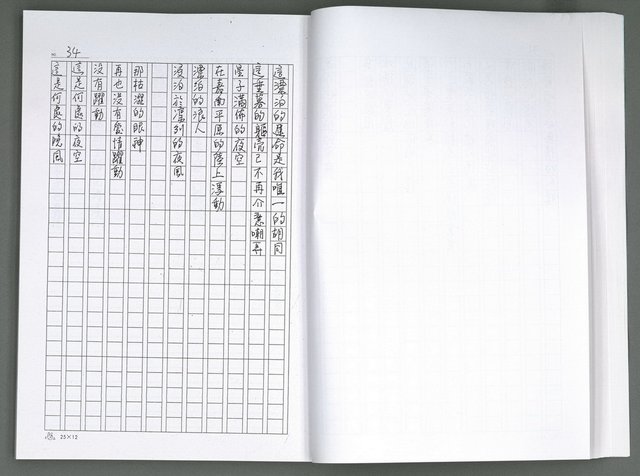 34
這漂泊的島卻是我唯一的胡同
這垂暮的軀
已不再介意嘲弄
星子滿佈的夜空
在嘉南平原的陸上浮動
漂泊的浪人
漂泊於離別的夜風
那枯澀的眼神
再也沒有愛情躍動
沒有躍動
這是何處的夜空
這是何處的晚風
25×12